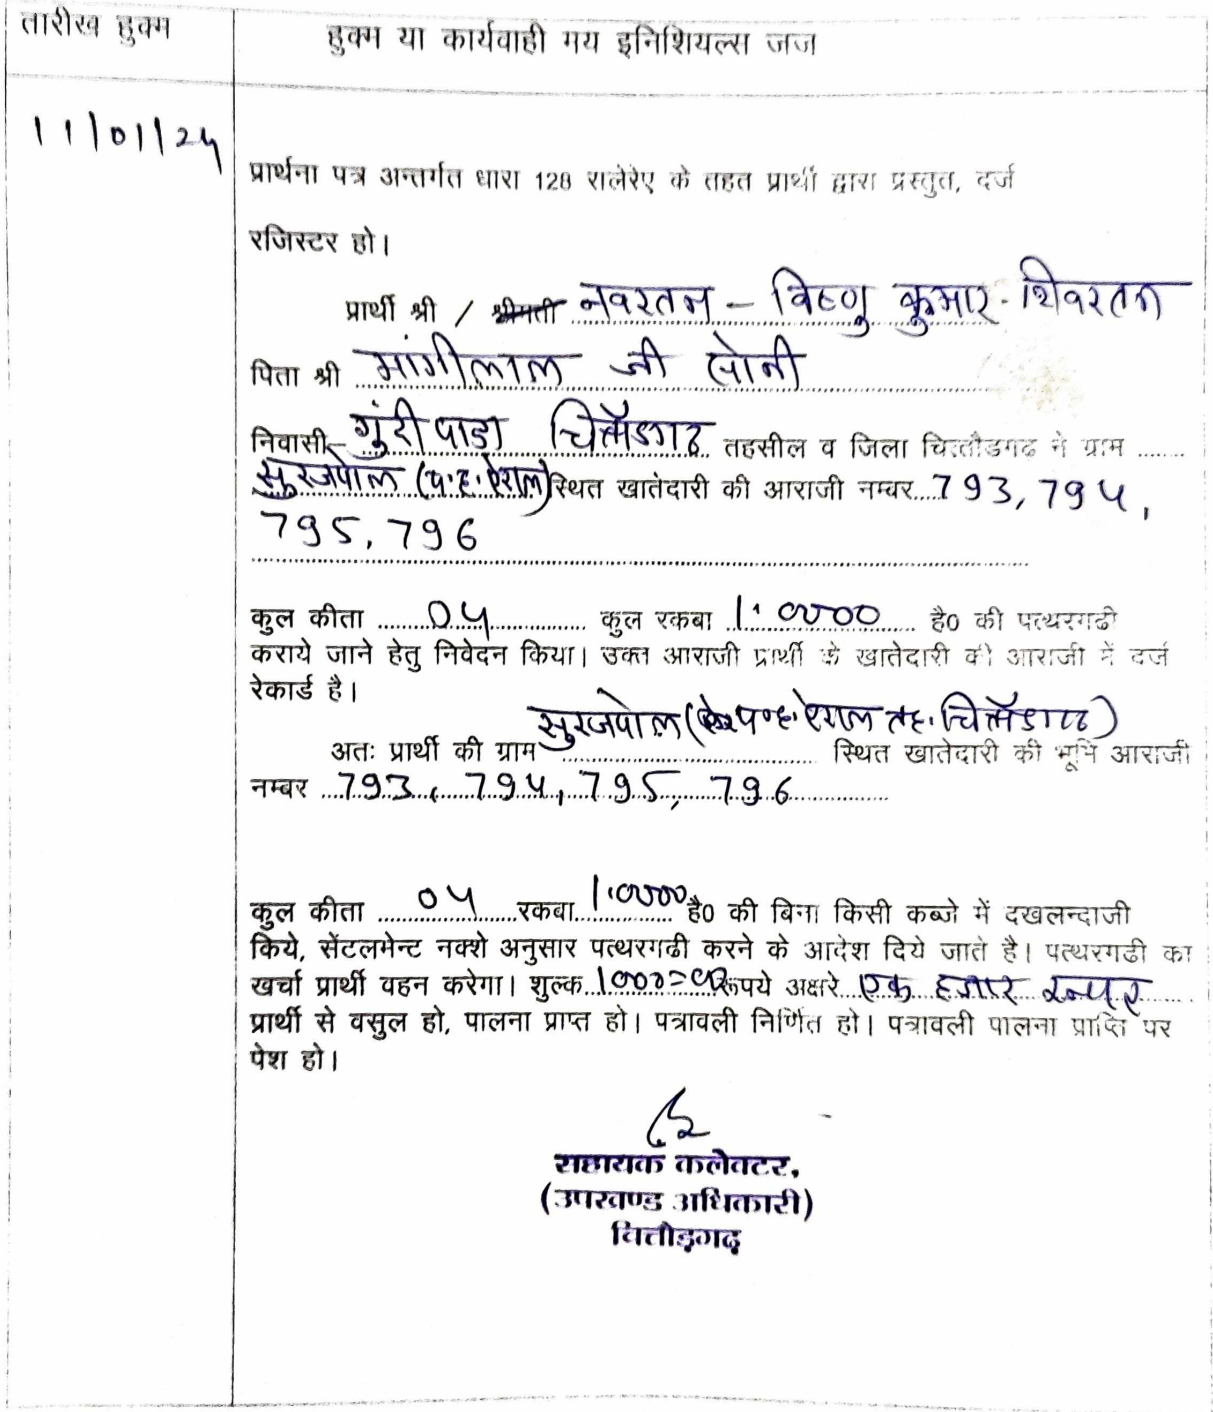 तारीख हुक्म
हुक्म या कार्यवाही मय इनिशियल्स जज
11/01/24
प्रार्थना पत्र अन्तर्गत धारा 128 रालेरेए के तहत प्रार्थी द्वारा प्रस्तुत, दर्ज
रजिस्टर हो।
प्रार्थी श्री / श्रीमती नवरतन - विष्णु कुमार - शिवरतन
पिता श्री मांगीलाल जी सोनी
निवासी गुंदी पाडा चित्तौडगढ तहसील व जिला चित्तौडगढ ने ग्राम ........
सुरजपोल (प.ह. ऐराल) स्थित खातेदारी की आराजी नम्बर....793, 794,
795, 796
कुल कीता ........04................ कुल रकबा ..1.0000.... है0 की पत्थरगढी
कराये जाने हेतु निवेदन किया। उक्त आराजी प्रार्थी के खातेदारी की आराजी में दर्ज
रेकार्ड है।
अतः प्रार्थी की ग्राम सुरजपोल (प०ह. ऐराल तह. चित्तौडगढ) स्थित खातेदारी की भूमि आराजी
नम्बर ..793, 794, 795, 796..............
कुल कीता ....04.....रकबा..1.0000..है0 की बिना किसी कब्जे में दखलन्दाजी
किये, सेंटलमेन्ट नक्शे अनुसार पत्थरगढी करने के आदेश दिये जाते है। पत्थरगढी का
खर्चा प्रार्थी वहन करेगा। शुल्क..1000=00 रूपये अक्षरे..एक हजार रूपए.....
प्रार्थी से वसुल हो, पालना प्राप्त हो। पत्रावली निर्णित हो। पत्रावली पालना प्राप्ति पर
पेश हो।
सहायक कलेक्टर,
(उपखण्ड अधिकारी)
चित्तौड़गढ़